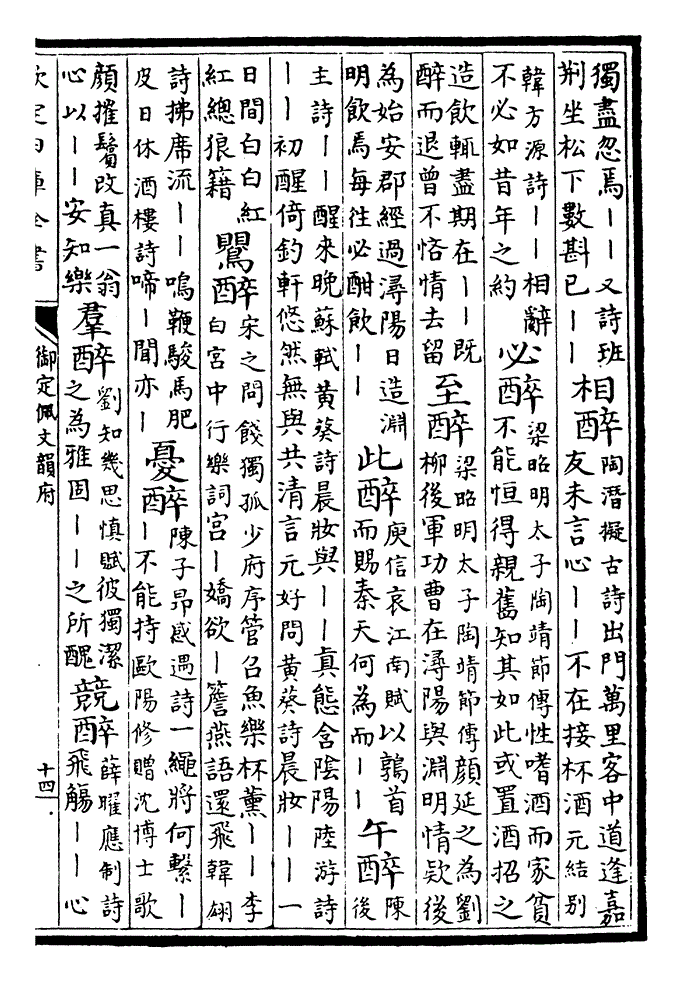 獨盡忽焉丨丨又詩班荆坐松下數斟已丨丨相醉陶潛擬古詩出門萬里客中道逢嘉友未言心丨丨不在接杯酒元結别
韓方源詩丨丨相辭不必如昔年之約必醉梁昭明太子陶靖節傳性嗜酒而家貧不能恒得親舊知其如此或置酒招之
造飲輒盡期在丨丨既醉而退曾不恡情去留至醉梁昭明太子陶靖節傳顔延之為劉柳後軍功曹在潯陽與淵明情欵後
為始安郡經過潯陽日造淵明飲焉每往必酣飲丨丨此醉庾信哀江南賦以鶉首而賜秦天何為而丨丨午醉陳後
主詩丨丨醒來晚蘇軾黄葵詩晨妝與丨丨真態含陰陽陸游詩丨丨初醒倚釣軒悠然無與共清言元好問黄葵詩晨妝丨丨一
日間白白紅紅總狼籍鸎醉宋之問餞獨孤少府序管召魚樂杯薰丨丨李白宮中行樂詞宫丨嬌欲丨簷燕語還飛韓翃
詩拂席流丨丨嗚鞭駿馬肥皮日休酒樓詩啼丨聞亦丨憂醉陳子昂感遇詩一繩將何繫丨丨不能持歐陽修贈沈博士歌
顔摧鬢改真一翁心以丨丨安知樂羣醉劉知幾思慎賦彼獨潔之為雅固丨丨之所醜競醉薛曜應制詩飛觴丨丨心
欽定四庫全書
御定佩文韻府
十四